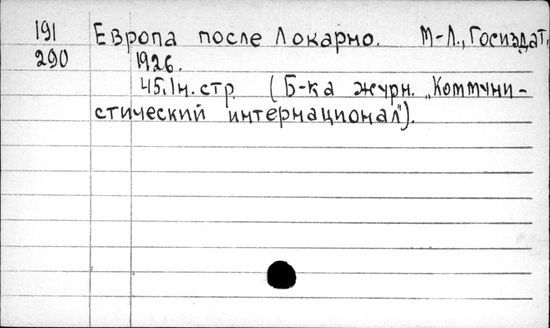 191 Европа после Локарно. М-Л., Госиздат,
290 1926.
45,1н.стр. (Б-ка журн. „Коммуни-
стический интернационал").